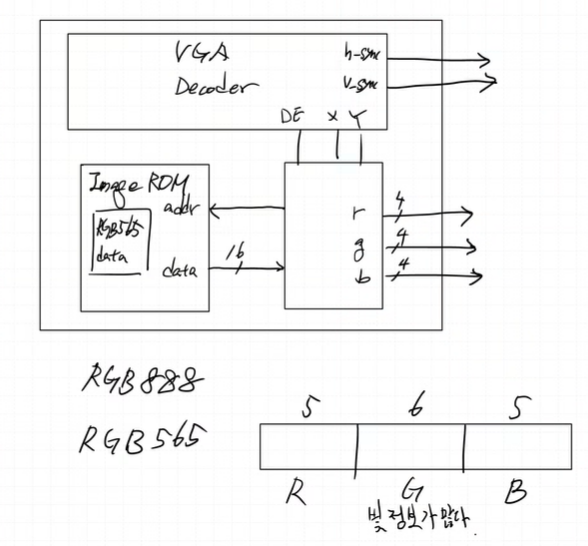 VGA
Decoder
h-sync
v-sync
DE X Y
Image ROM
RGB565
data
addr
data
16
r
g
b
4
4
4
RGB888
RGB565
5 6 5
R G B
빛 정보가 많다.